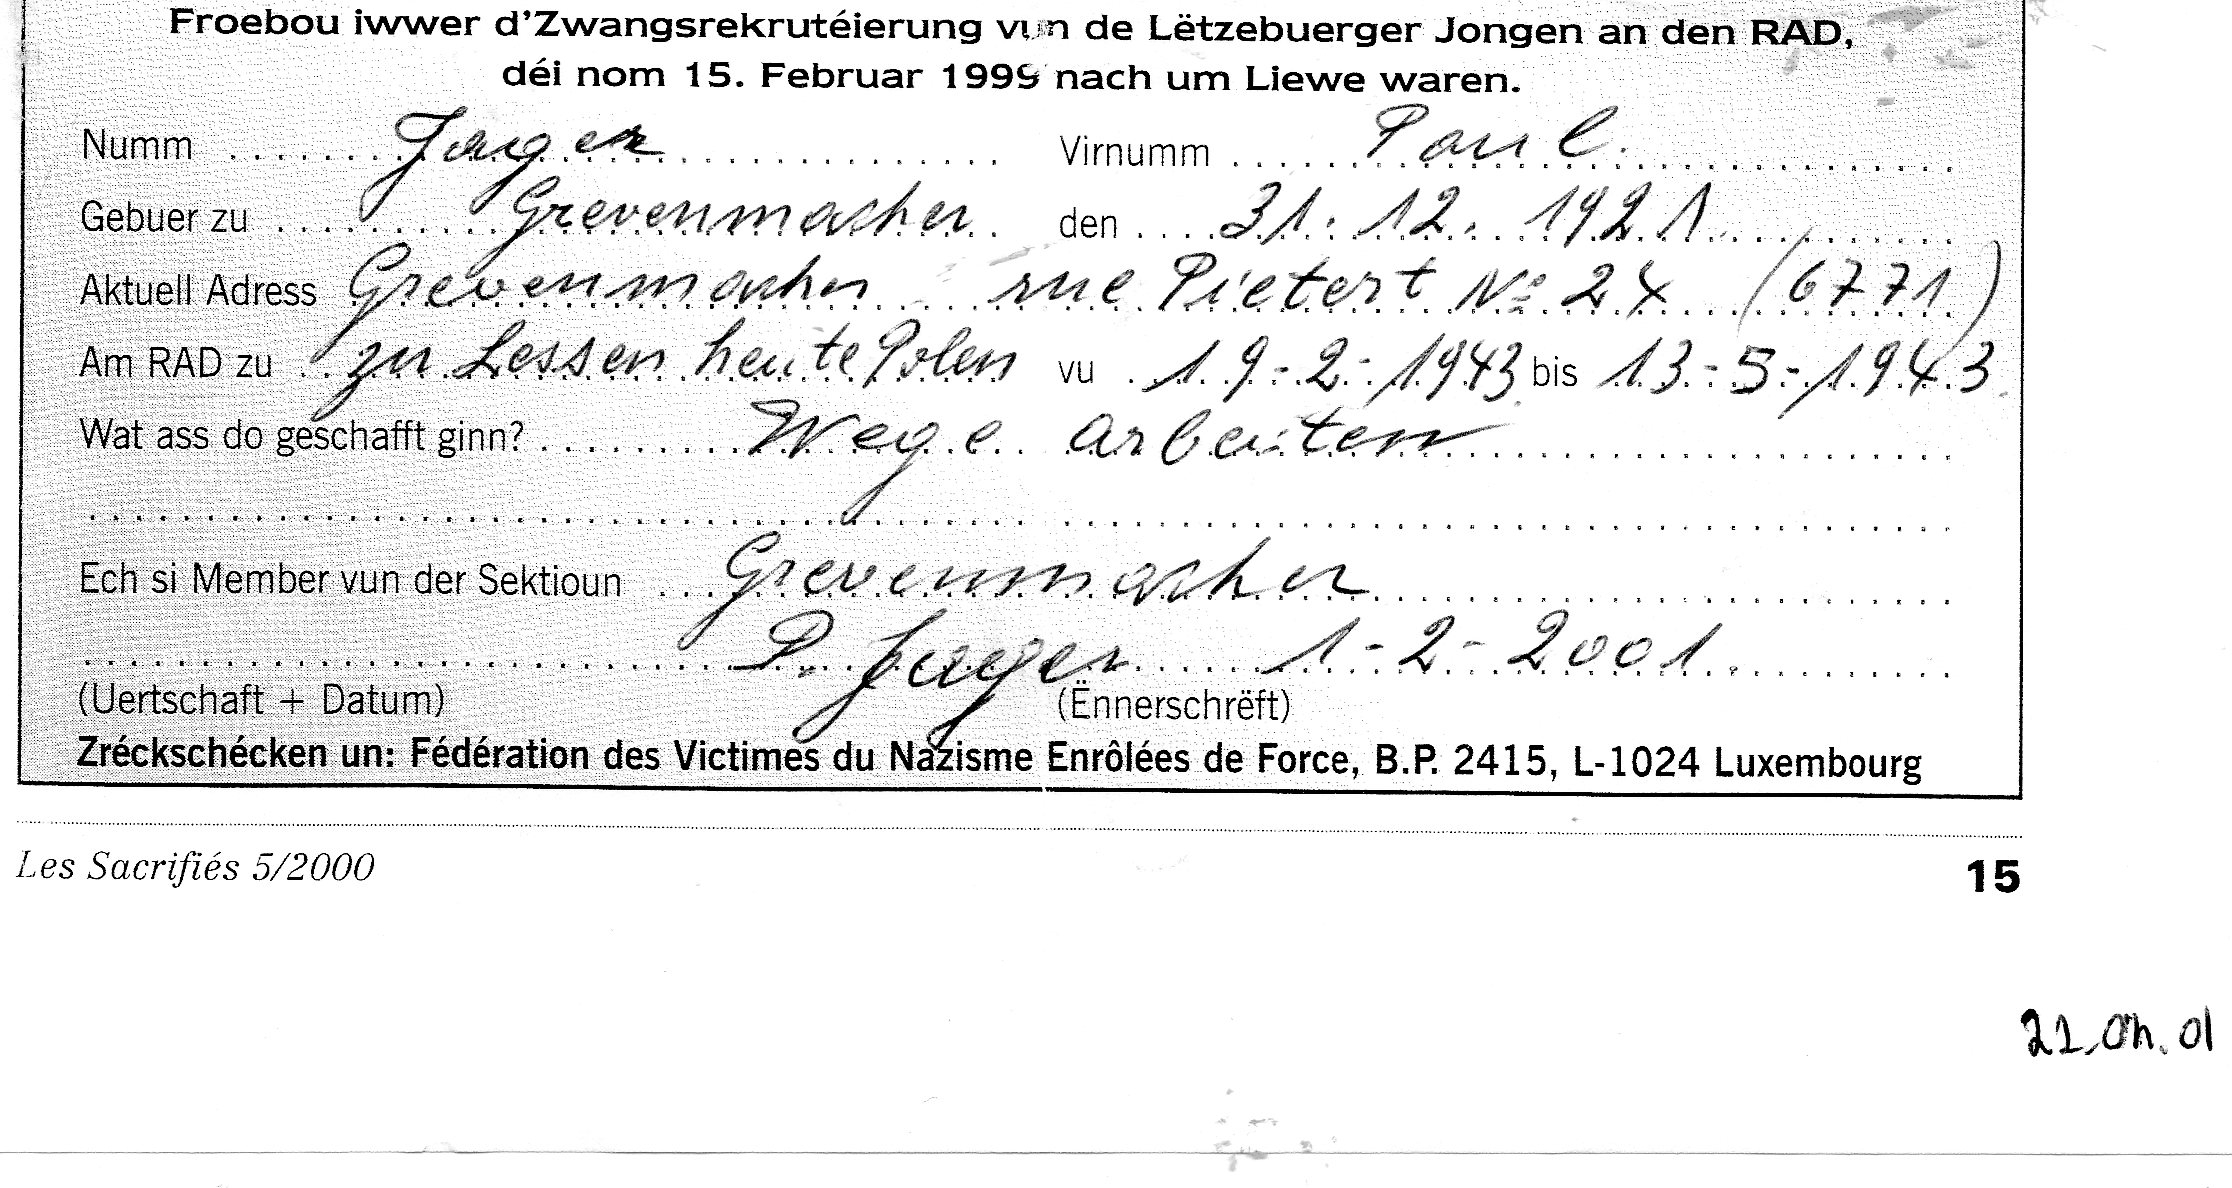 Froebou iwwer d'Zwangsrekrutéierung vun de Lëtzebuerger Jongen an den RAD,
déi nom 15. Februar 1999 nach um Liewe waren.
Numm Jager Virnumm Paul
Gebuer zu Grevenmacher den 31. 12. 1921
Aktuell Adress Grevenmacher rue Pietert No 24 (6771)
Am RAD zu zu Lessen heute Polen vu 19-2-1943 bis 13-5-1943
Wat ass do geschafft ginn? Wege arbeiten
Ech si Member vun der Sektioun Grevenmacher
P. Jager 1-2-2001
(Uertschaft + Datum) (Ënnerschrëft)
Zréckschécken un: Fédération des Victimes du Nazisme Enrôlées de Force, B.P. 2415, L-1024 Luxembourg
Les Sacrifiés 5/2000 15